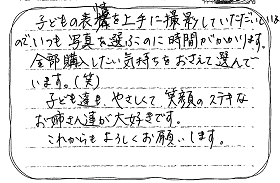 子どもの表情を上手に撮影していただいている
ので、いつも写真を選ぶのに時間がかかります。
全部購入したい気持ちをおさえて選んで
います。(笑)
子ども達も、やさしくて笑顔のステキな
お姉さん達が大好きです。
これからもよろしくお願いします。